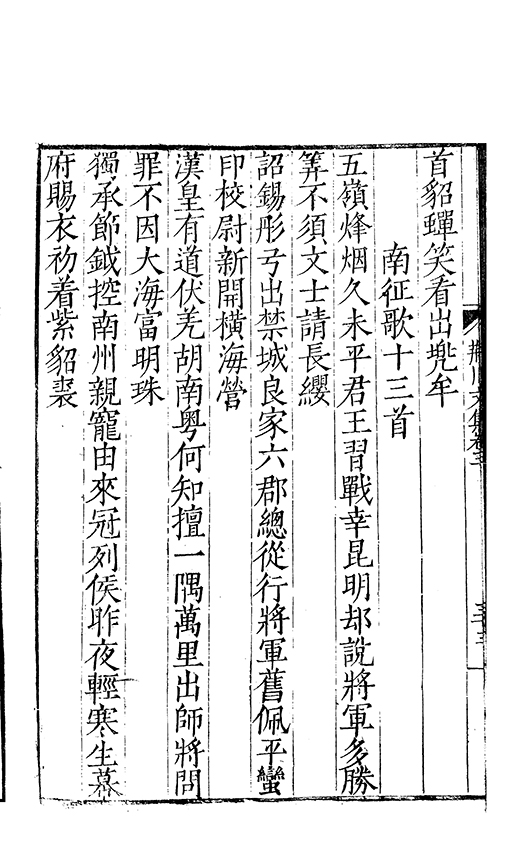 首貂蟬笑看出兠牟
南征歌十三首
五嶺烽烟久未平君王習戰幸昆明却說將軍多勝
筭不須文士請長纓
詔錫彤弓出禁城良家六郡總從行將軍舊佩平蠻
印校尉新開橫海營
漢皇有道伏羌胡南粤何知擅一隅萬里出師將問
罪不因大海富明珠
獨承節鉞控南州親寵由來冠列侯昨夜輕寒生幕
府賜衣初着紫貂裘